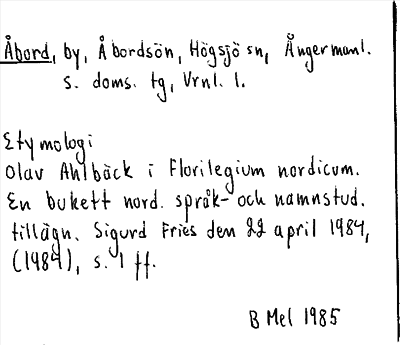 Åbord, by, Åbordsön, Högsjö sn, Ångermanl.
s. doms. tg, Vrnl. l.
Etymologi
Olav Ahlbäck i Florilegium nordicum.
En bukett nord. språk- och namnstud.
tillägn. Sigurd Fries den 22 april 1984,
(1984), s. 1 ff.
B Mel 1985